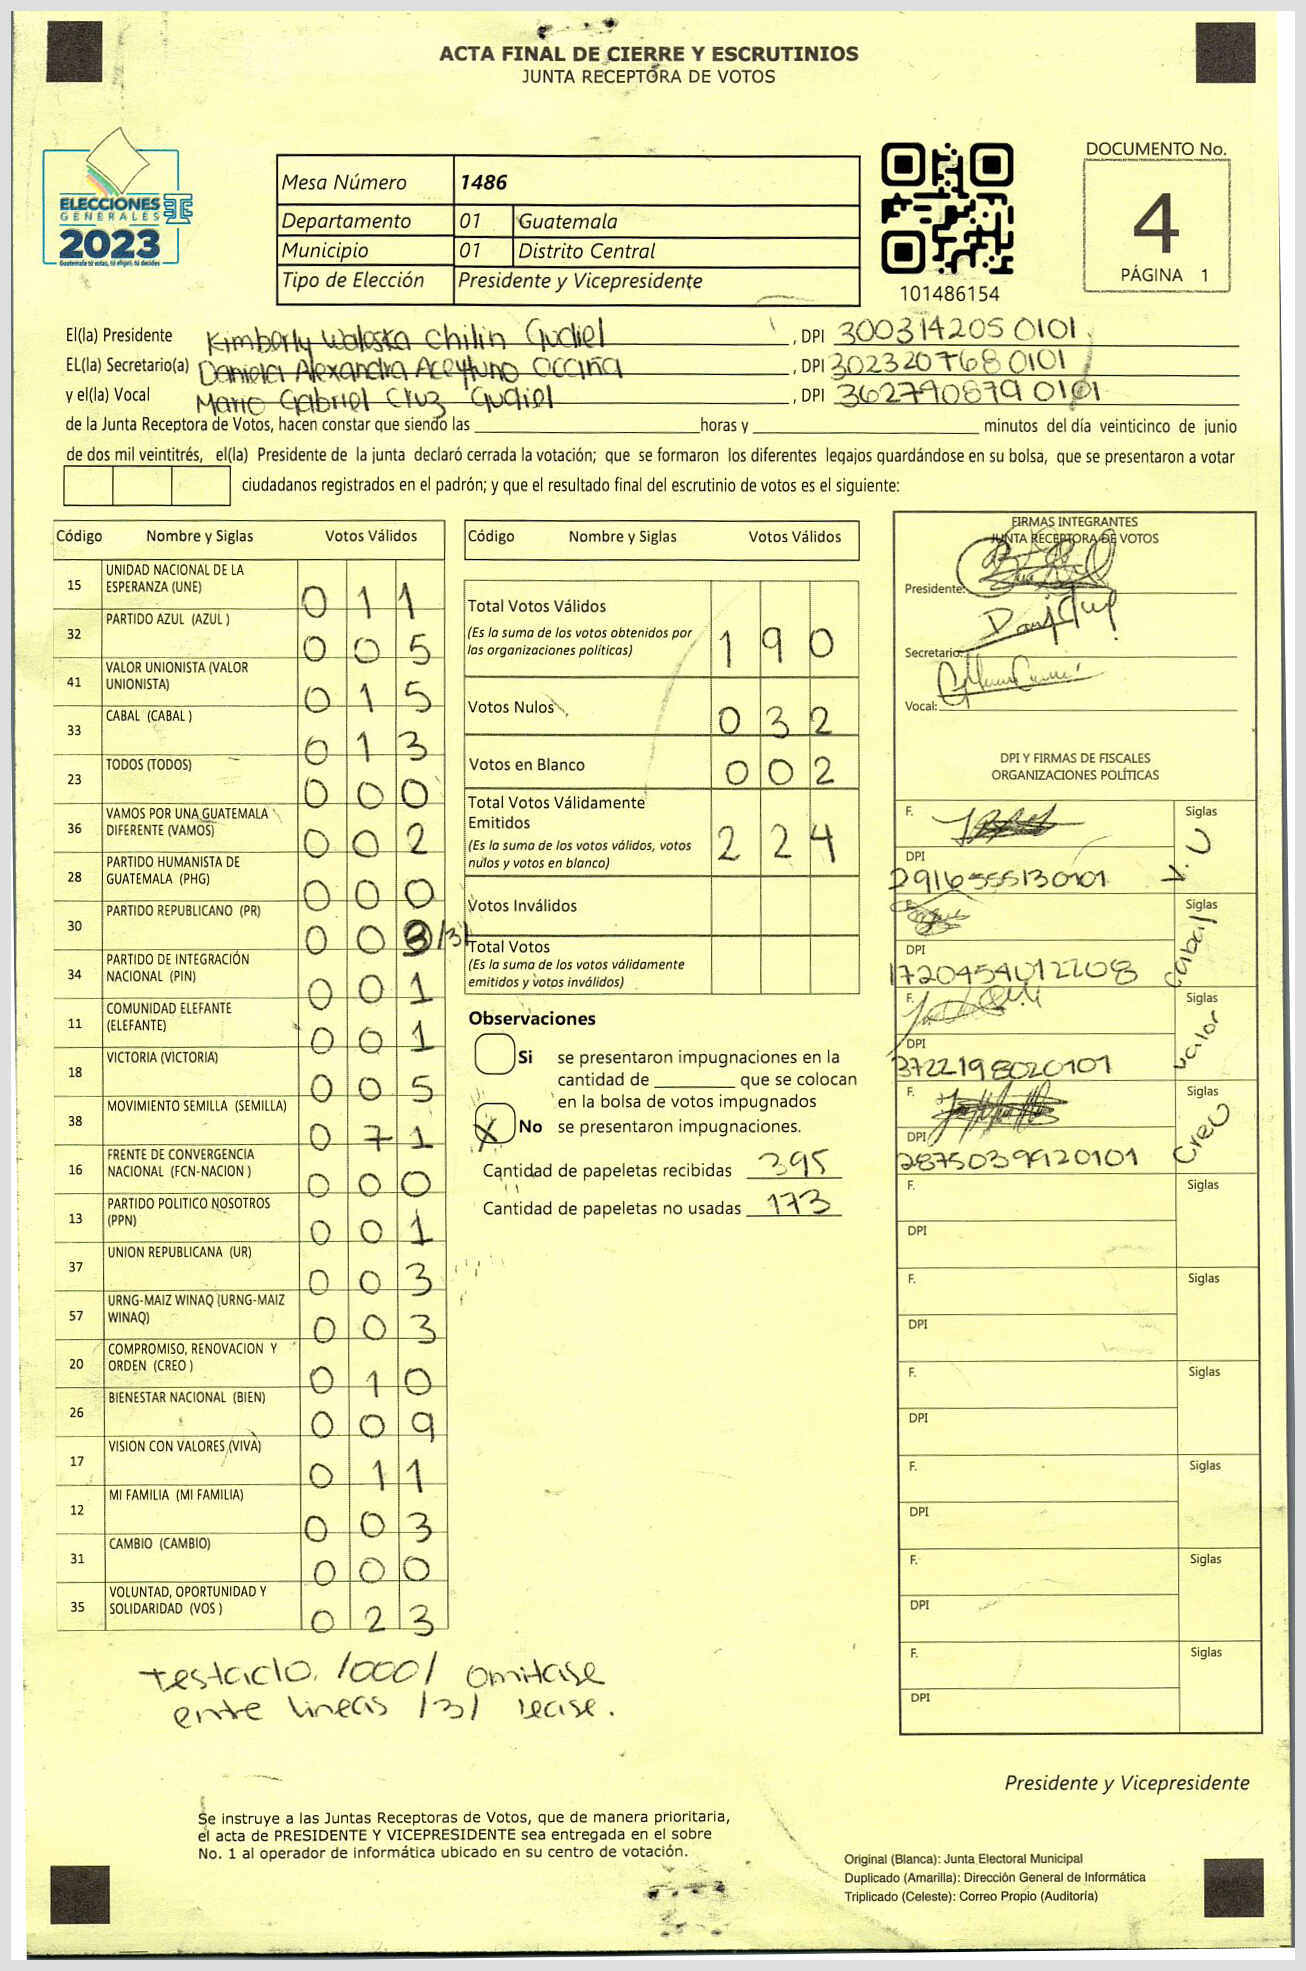 ACTA FINAL DE CIERRE Y ESCRUTINIOS
JUNTA RECEPTORA DE VOTOS
ELECCIONES
GENERALES
2023
Guatemala tú votas, tú eliges, tú decides
Mesa Número 1486
Departamento 01 Guatemala
Municipio 01 Distrito Central
Tipo de Elección Presidente y Vicepresidente
101486154
DOCUMENTO No.
4
PÁGINA 1
El(la) Presidente Kimberly Waleska Chilin Gudiel, DPI 300314205 0101
EL(la) Secretario(a) Daniela Alexandra Aceytuno Occiña, DPI 302320768 0101
y el(la) Vocal Mario Gabriel Cruz Gudiel, DPI 362790879 0101
de la Junta Receptora de Votos, hacen constar que siendo las ____ horas y ____ minutos del día veinticinco de junio
de dos mil veintitrés, el(la) Presidente de la junta declaró cerrada la votación; que se formaron los diferentes legajos guardándose en su bolsa, que se presentaron a votar
ciudadanos registrados en el padrón; y que el resultado final del escrutinio de votos es el siguiente:
Código Nombre y Siglas Votos Válidos
15 UNIDAD NACIONAL DE LA ESPERANZA (UNE) 0 1 1
32 PARTIDO AZUL (AZUL ) 0 0 5
41 VALOR UNIONISTA (VALOR UNIONISTA) 0 1 5
33 CABAL (CABAL ) 0 1 3
23 TODOS (TODOS) 0 0 0
36 VAMOS POR UNA GUATEMALA DIFERENTE (VAMOS) 0 0 2
28 PARTIDO HUMANISTA DE GUATEMALA (PHG) 0 0 0
30 PARTIDO REPUBLICANO (PR) 0 0 3 /3/
34 PARTIDO DE INTEGRACIÓN NACIONAL (PIN) 0 0 1
11 COMUNIDAD ELEFANTE (ELEFANTE) 0 0 1
18 VICTORIA (VICTORIA) 0 0 5
38 MOVIMIENTO SEMILLA (SEMILLA) 0 7 1
16 FRENTE DE CONVERGENCIA NACIONAL (FCN-NACION ) 0 0 0
13 PARTIDO POLITICO NOSOTROS (PPN) 0 0 1
37 UNION REPUBLICANA (UR) 0 0 3
57 URNG-MAIZ WINAQ (URNG-MAIZ WINAQ) 0 0 3
20 COMPROMISO, RENOVACION Y ORDEN (CREO ) 0 1 0
26 BIENESTAR NACIONAL (BIEN) 0 0 9
17 VISION CON VALORES (VIVA) 0 1 1
12 MI FAMILIA (MI FAMILIA) 0 0 3
31 CAMBIO (CAMBIO) 0 0 0
35 VOLUNTAD, OPORTUNIDAD Y SOLIDARIDAD (VOS ) 0 2 3
testado. /000/ omitase
entre lineas /3/ lease.
Código Nombre y Siglas Votos Válidos
Total Votos Válidos 1 9 0
(Es la suma de los votos obtenidos por
las organizaciones políticas)
Votos Nulos 0 3 2
Votos en Blanco 0 0 2
Total Votos Válidamente
Emitidos 2 2 4
(Es la suma de los votos válidos, votos
nulos y votos en blanco)
Votos Inválidos
Total Votos
(Es la suma de los votos válidamente
emitidos y votos inválidos)
Observaciones
Si se presentaron impugnaciones en la
cantidad de ____ que se colocan
en la bolsa de votos impugnados
X No se presentaron impugnaciones.
Cantidad de papeletas recibidas 395
Cantidad de papeletas no usadas 173
FIRMAS INTEGRANTES
JUNTA RECEPTORA DE VOTOS
Presidente:
Secretario:
Vocal:
DPI Y FIRMAS DE FISCALES
ORGANIZACIONES POLÍTICAS
F. Siglas V.U
DPI 2916555130101
F. Siglas Cabal
DPI 1720454012208
F. Siglas Valor
DPI 3722198020101
F. Siglas Creo
DPI 2875039920101
F. Siglas
DPI
F. Siglas
DPI
F. Siglas
DPI
F. Siglas
DPI
F. Siglas
DPI
F. Siglas
DPI
Presidente y Vicepresidente
Se instruye a las Juntas Receptoras de Votos, que de manera prioritaria,
el acta de PRESIDENTE Y VICEPRESIDENTE sea entregada en el sobre
No. 1 al operador de informática ubicado en su centro de votación.
Original (Blanca): Junta Electoral Municipal
Duplicado (Amarilla): Dirección General de Informática
Triplicado (Celeste): Correo Propio (Auditoría)